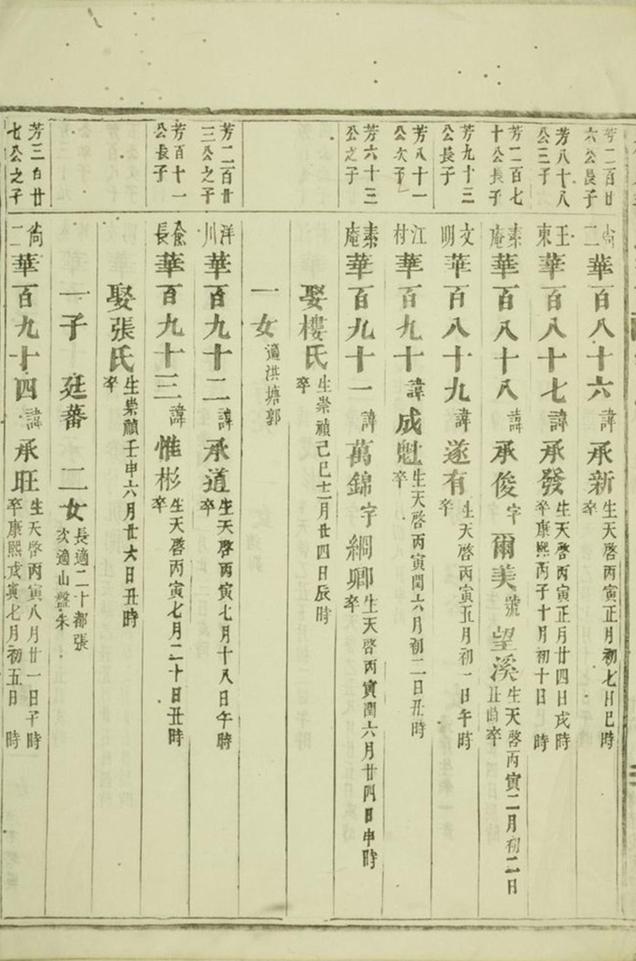 芳二百廿六公長子 尚二 華百八十六 諱承新 生天啓丙寅正月初七日巳時 卒
芳八十八公三子 王東 華百八十七 諱承發 生天啓丙寅正月廿四日戌時 卒康熙丙子十月初十日 時
芳二百七十公長子 素庵 華百八十八 諱承俊 字爾美 號望溪 生天啓丙寅二月初二日丑時 卒
芳九十三公長子 文明 華百八十九 諱遂有 生天啓丙寅五月初一日午時 卒
芳八十一公次子 江村 華百九十 諱成魁 生天啓丙寅閏六月初二日丑時 卒
芳六十三公之子 素庵 華百九十一 諱萬錦 字綱卿 生天啓丙寅閏六月廿四日申時 卒
娶樓氏 生崇禎己巳十二月廿四日辰時 卒
一女 適洪塘郭
芳二百廿三公之子 洋川 華百九十二 諱承道 生天啓丙寅七月十八日午時 卒
芳百十一公長子 長 華百九十三 諱惟彬 生天啓丙寅七月二十日丑時 卒
娶張氏 生崇禎壬申六月廿六日丑時 卒
一子 廷蕃 二女 長適二十都張 次適山盤朱
芳三百廿七公之子 尚二 華百九十四 諱承旺 生天啓丙寅八月廿一日子時 卒康熙戊寅七月初五日 時